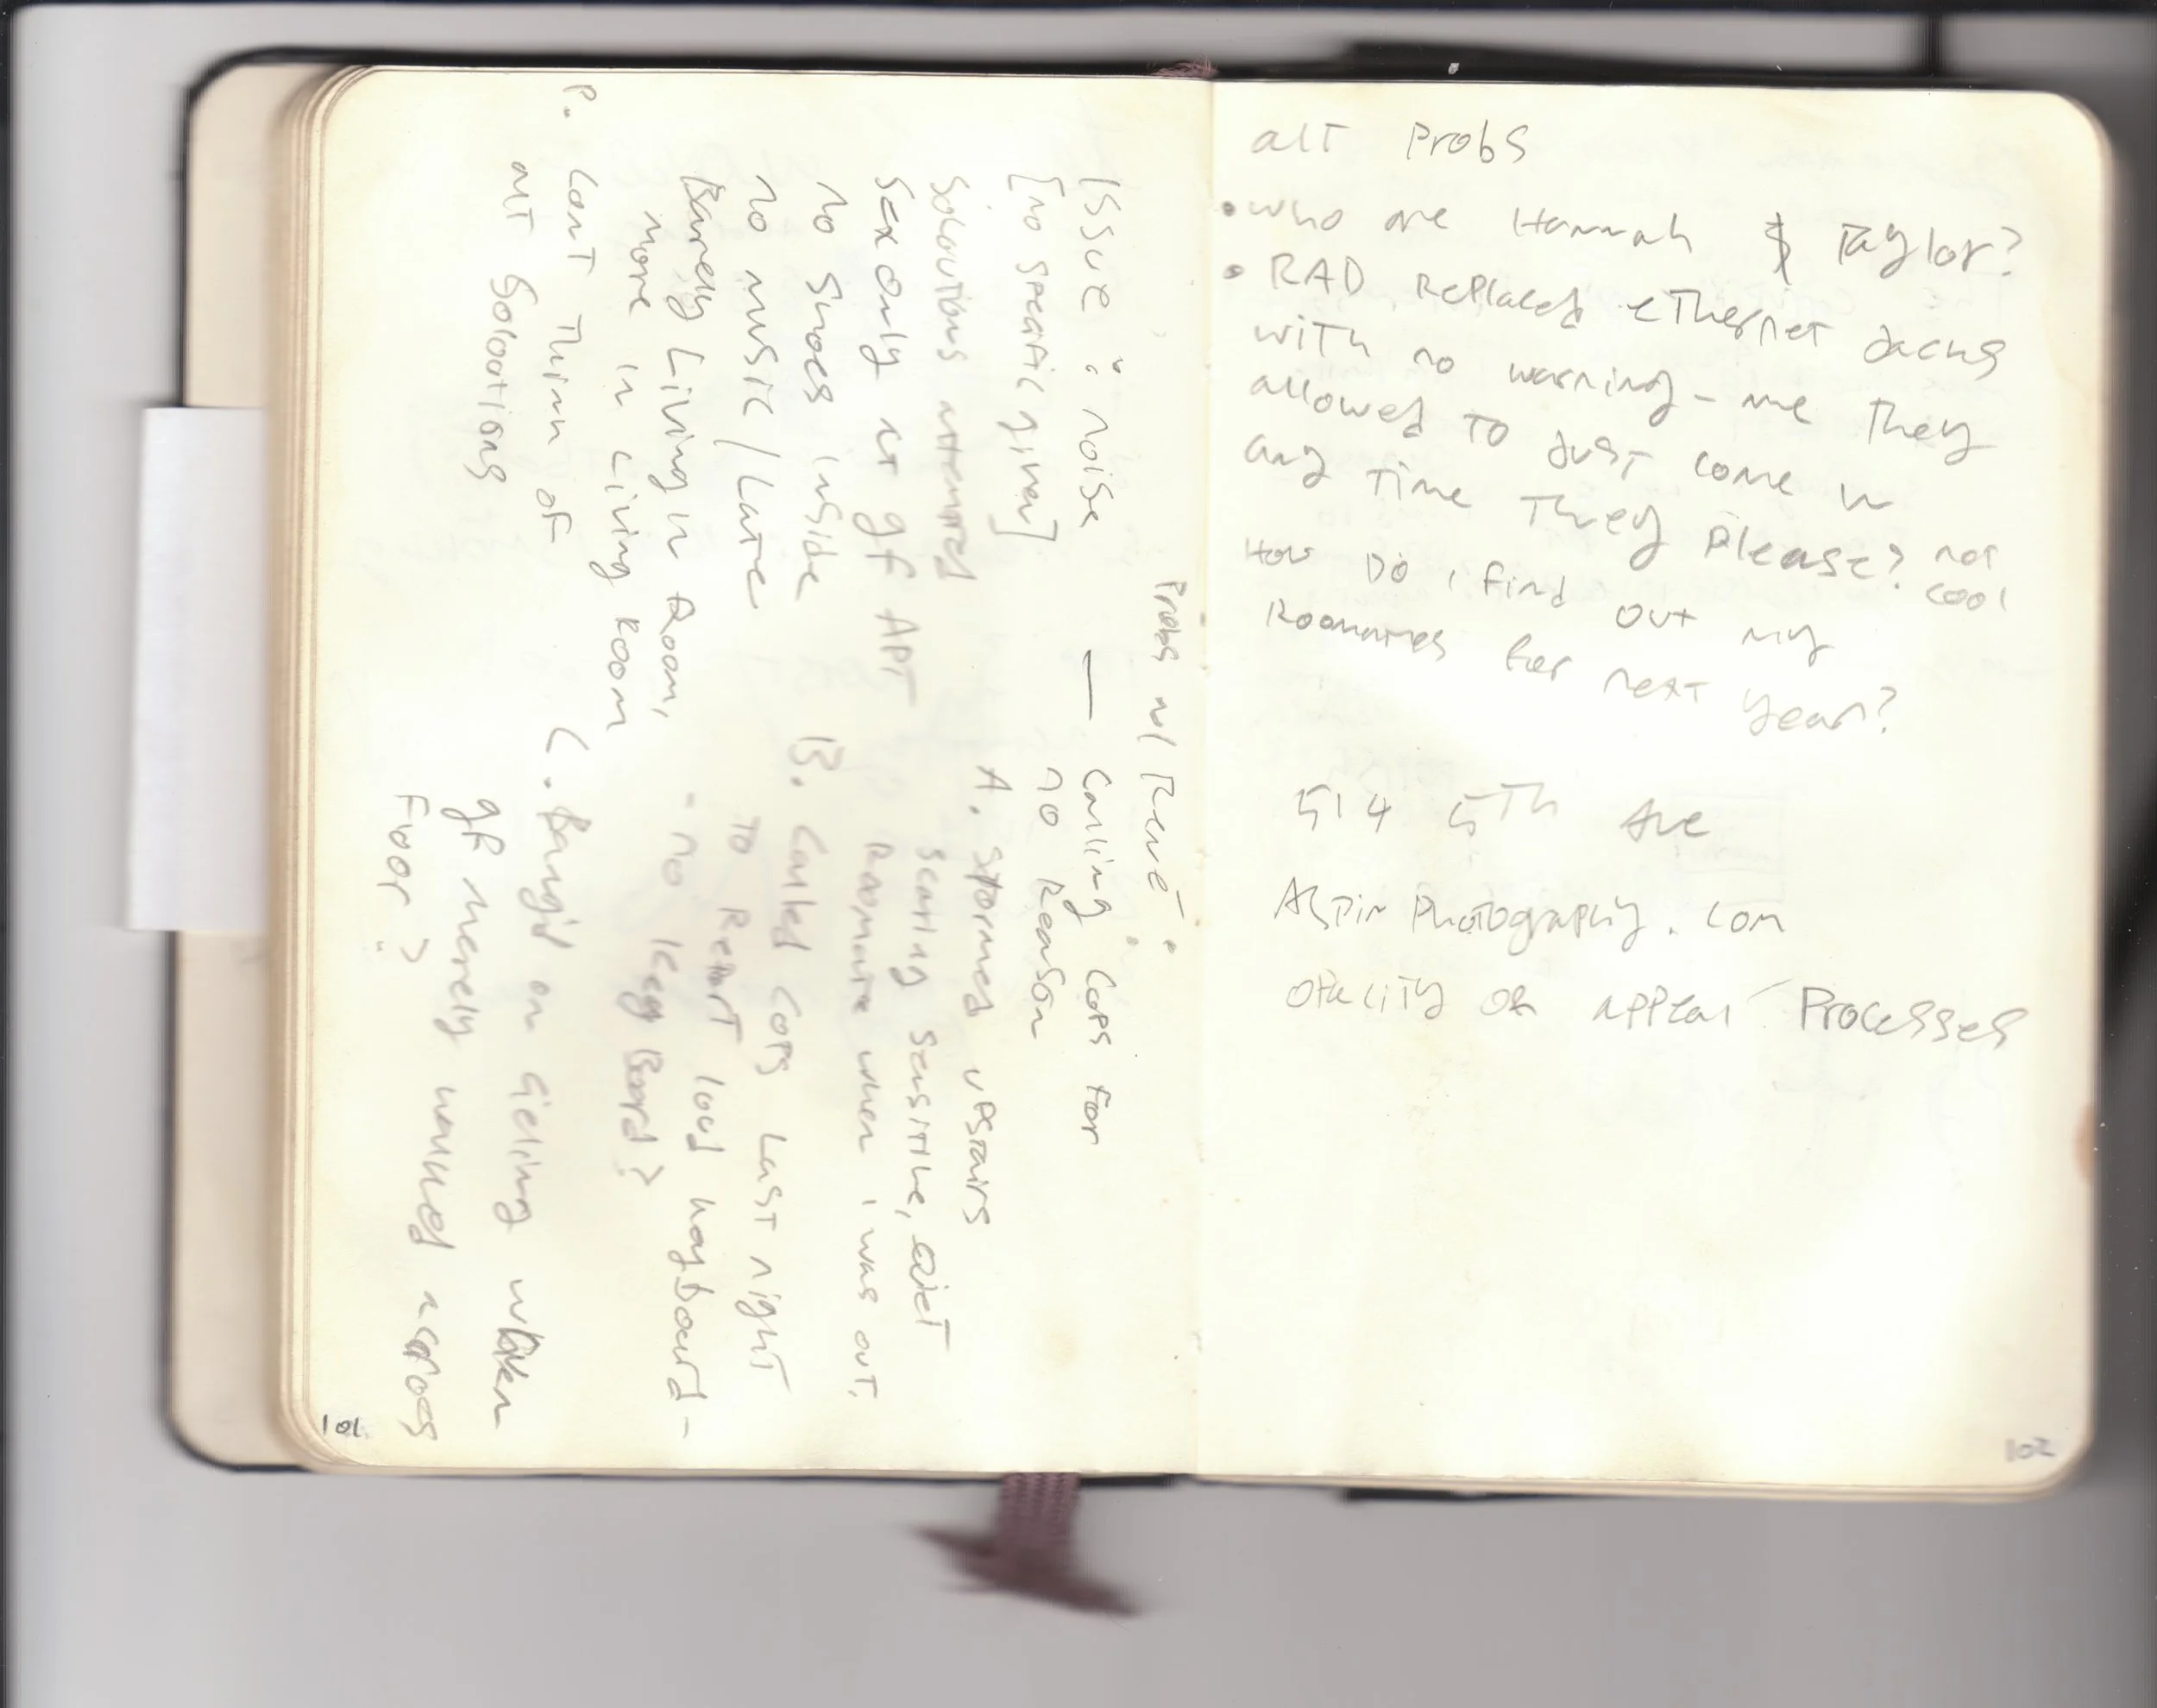 Probs w/ Rene:
Issue: noise
[no specific given]
Solutions attempted
Sex only at gf APT
no shoes inside
no music/Late
Barely Living in Room,
more in Living Room
P.
Cant Think of
alt Solootions
— Calling Cops For
no Reason
A. Stormed upstairs
scaring sensitive, qiet
Roomate when i was out.
B. Called Cops Last night
To Report loud keyboard-
- no key Board?
C. Bang'd on Cieling when
gf merely walked across
Floor?
101
alt Probs
• who are Hannah & Taylor?
• RAD Replaced eThernet Jacks
with no warning - are They
allowed To Just come in
any Time They Please? not
cool
How Do i find out my
Roomates for next year?
514 5Th Ave
Photography.com
opacity of appeal Processes
102